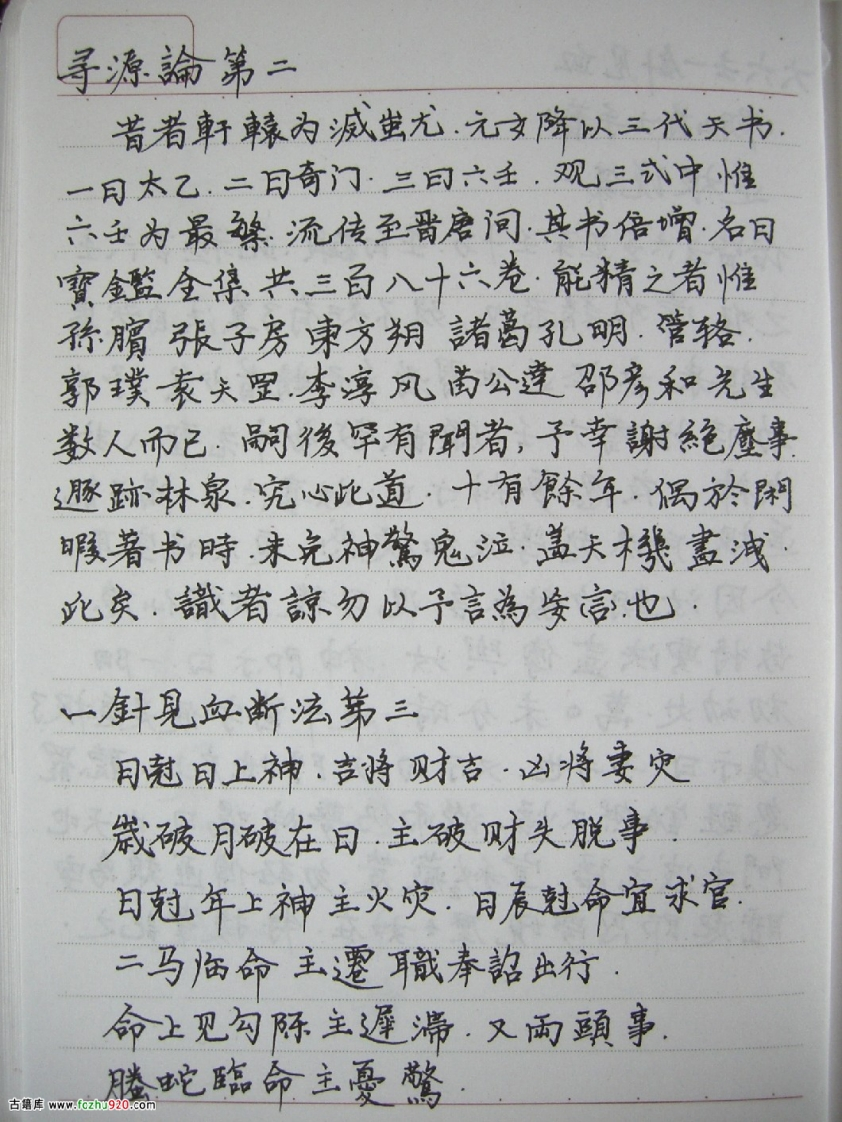 寻源論第二
昔者軒轅为滅蚩尤．元女降以三代天书．
一曰太乙．二曰奇门．三曰六壬．观三式中惟
六壬为最繁．流传至晋唐间．其书倍增．名曰
寶鑑全集共三百八十六卷．能精之者惟
孫臏 張子房 東方朔 諸葛孔明．管辂．
郭璞 袁天罡．李淳风 苗公達 邵彦和先生
数人而已．嗣後罕有聞者，予幸謝絕塵事．
遯跡林泉．究心此道．十有餘年．偶於閑
暇著书時．未免神驚鬼泣．盖天機盡洩．
此矣．識者諒勿以予言為妄言也．
一針見血断法第三
日尅日上神．吉将财吉．凶將妻灾
歲破月破在日．主破财失脱事．
日尅年上神主火灾．日辰尅命宜求官．
二马临命 主遷職奉詔出行．
命上见勾陈主遲滯．又両頭事．
螣蛇臨命主憂驚．
古籍库 www.fczhu920.com